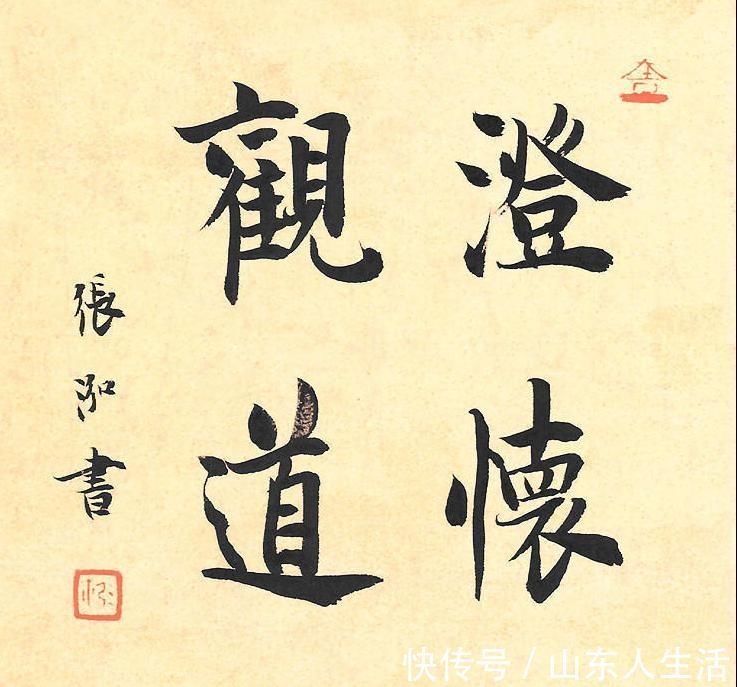 澄懷
觀道
張泓書
快传号/山东人生活